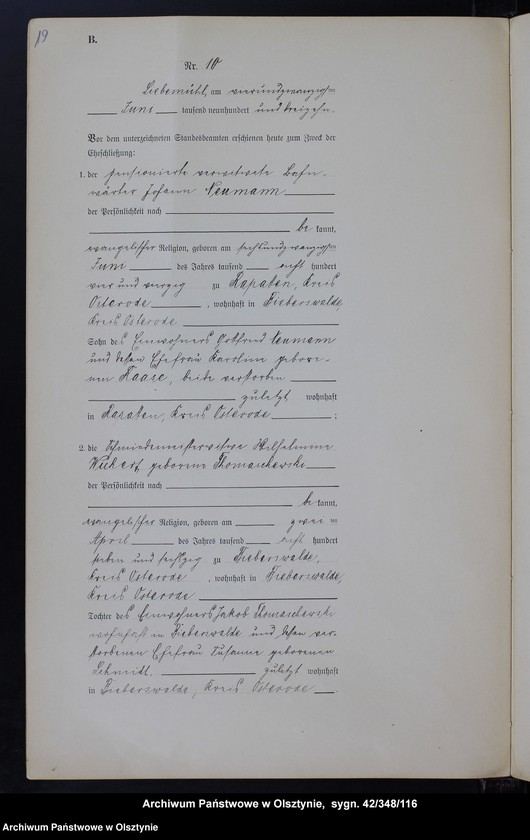 19
B.
Nr. 10
Liebemühl, am vierundzwanzigsten
Juni tausend neunhundert und dreizehn.
Vor dem unterzeichneten Standesbeamten erschienen heute zum Zweck der
Eheschließung:
1. der pensionierte verwitwete Bahn-
wärter Johann Neumann
der Persönlichkeit nach
be kannt,
evangelischer Religion, geboren am sechsundzwanzigsten
Juni des Jahres tausend acht hundert
vier und vierzig zu Kapaten, Kreis
Osterode, wohnhaft in Bieberswalde,
Kreis Osterode
Sohn des Einwohners Gottfried Neumann
und dessen Ehefrau Karoline gebore-
nen Haase, beide verstorben
zuletzt wohnhaft
in Karaten, Kreis Osterode;
2. die Schmiedemeisterwitwe Wilhelmine
geborene Thomaschewski
der Persönlichkeit nach
be kannt,
evangelischer Religion, geboren am zwei ten
April des Jahres tausend acht hundert
sieben und sechszig zu Bieberswalde,
Kreis Osterode, wohnhaft in Bieberswalde,
Kreis Osterode
Tochter des Einwohners Jakob Thomaschewski
wohnhaft in Bieberswalde und dessen ver-
storbenen Ehefrau Susanne geborenen
Schmidt, zuletzt wohnhaft
in Bieberswalde, Kreis Osterode.
Archiwum Państwowe w Olsztynie, sygn. 42/348/116
Archiwum Państwowe w Olsztynie